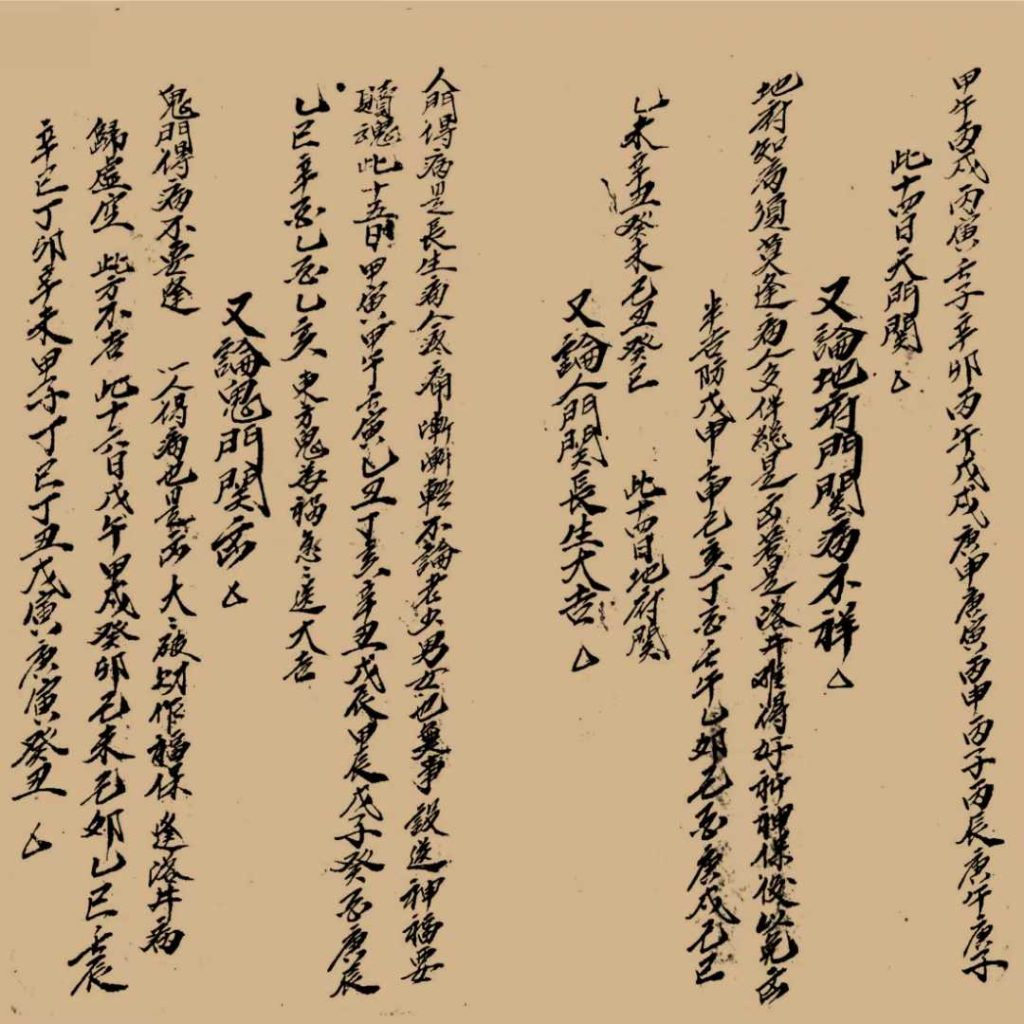 甲午丙戌丙寅壬子辛卯丙午戊戌庚申庚寅丙申丙子丙辰庚午庚子
此十四日天門関
又論地府門関病不祥
地府知病須災逢病人多伴総是凶若是落井难得好祈神保後必見凶
半吉防戊申壬申己亥丁酉壬午乙卯己酉庚戌己巳
乙未辛丑癸未己丑癸巳 此十四日地府関
又論人門関長生大吉
人門得病是長生病人疼痛漸漸輕不論老少男女也無事設送神福要
贖魂此十五日甲寅甲午壬寅乙丑丁亥辛丑戊辰甲辰戊子癸酉庚辰
乙巳辛酉乙酉乙亥 東方鬼為禍急〻送大吉
又論鬼門関凶
鬼門得病不要逢 人得病也是凶 大〻破財作福保 逢落井病
歸虛空 此方不吉 此十六日戊午甲戌癸卯己未己卯乙巳壬辰
辛巳丁卯辛未甲子丁巳丁丑戊寅庚寅癸丑